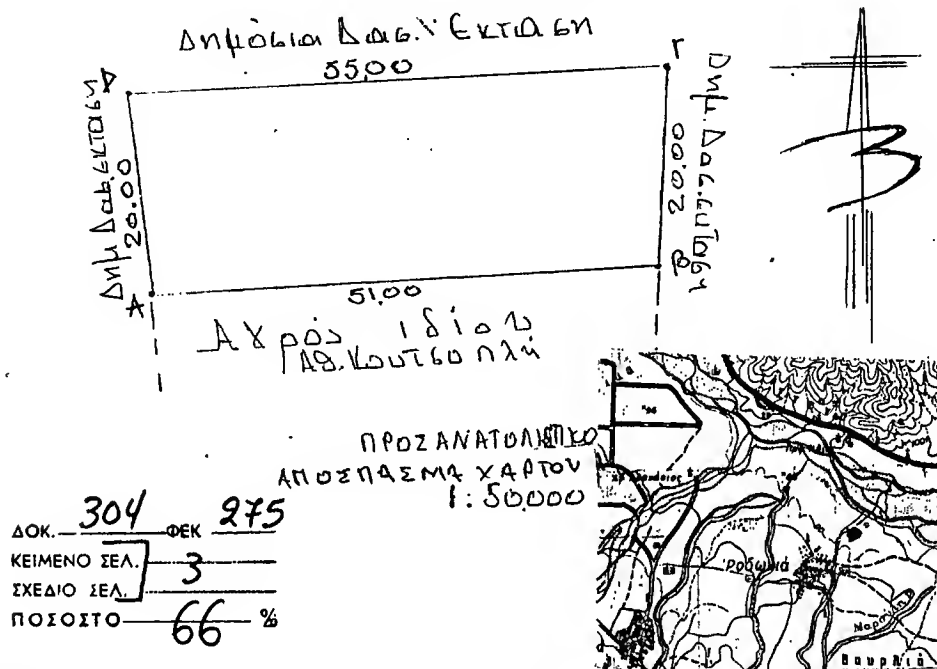 Δημόσια Δασ. Έκταση
55,00
Δ
Γ
Δημ Δασ. έκταση
20.00
Δημ. Δασ. έκταση
20.00
A
B
51,00
Αγρός ιδίου
Αθ. Κουτσοπλή
3
ΠΡΟΣΑΝΑΤΟΛΙΣΤΙΚΟ
ΑΠΟΣΠΑΣΜΑ ΧΑΡΤΟΥ
1:50,000
ΔΟΚ. 304 ΦΕΚ 275
ΚΕΙΜΕΝΟ ΣΕΛ.
ΣΧΕΔΙΟ ΣΕΛ. 3
ΠΟΣΟΣΤΟ 66 %
Ροδωνιά
Βαυρλιά